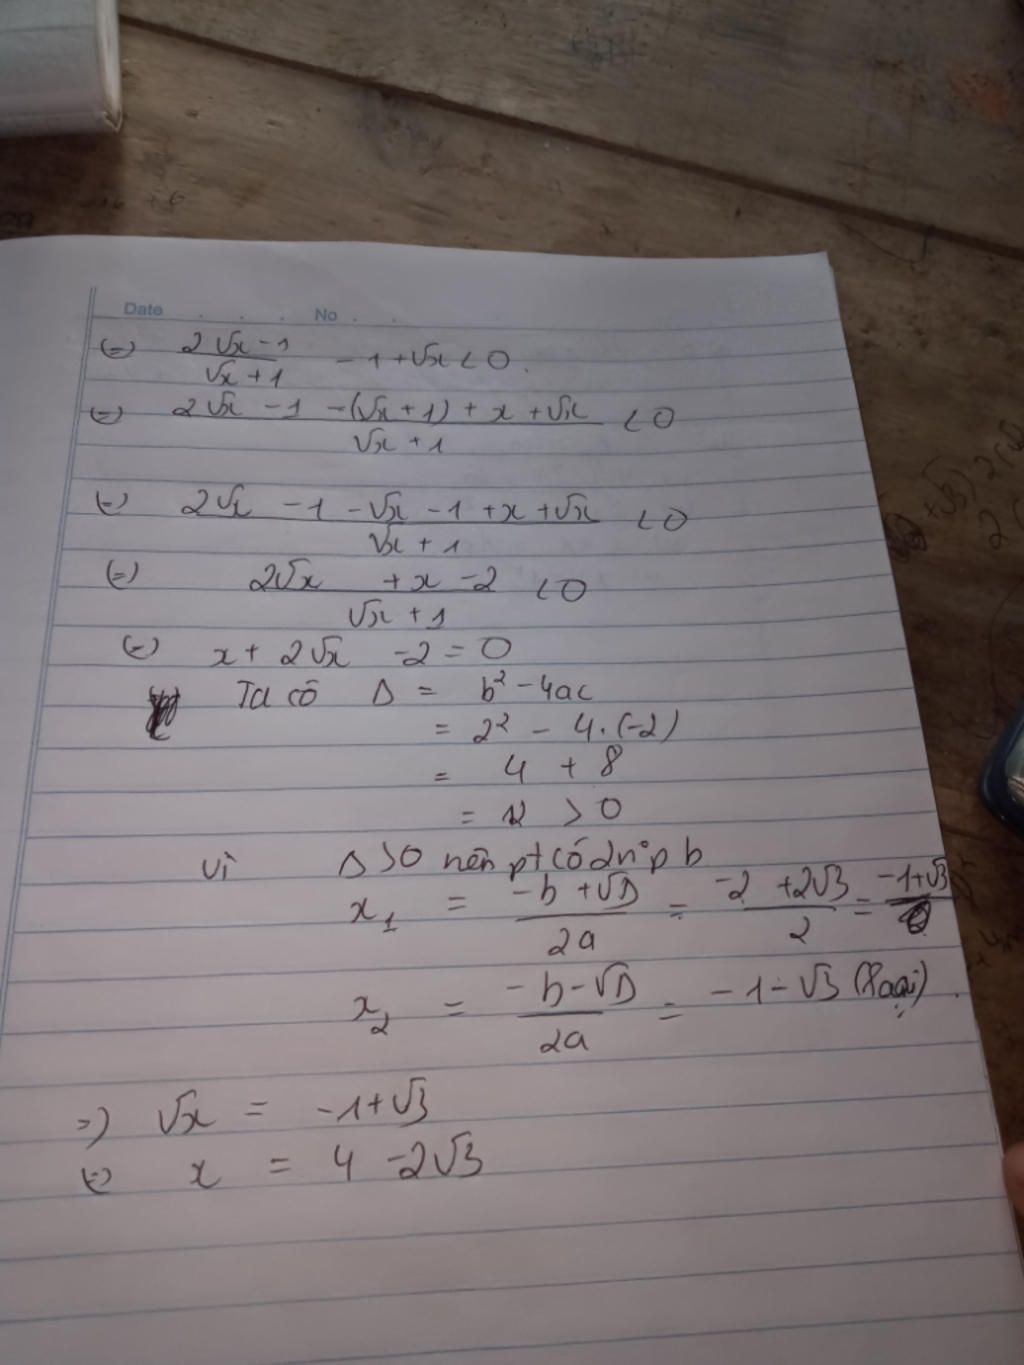 Date . . . No . .
(=) (2√x - 1)/(√x + 1) - 1 + √x < 0.
(=) (2√x - 1 - (√x + 1) + x + √x)/(√x + 1) < 0
(=) (2√x - 1 - √x - 1 + x + √x)/(√x + 1) < 0
(=) (2√x + x - 2)/(√x + 1) < 0
(=) x + 2√x - 2 = 0
Ta có Δ = b² - 4ac
= 2² - 4.(-2)
= 4 + 8
= 12 > 0
Vì Δ > 0 nên pt có 2 n° p b
x₁ = (-b + √Δ)/2a = (-2 + 2√3)/2 = -1 + √3
x₂ = (-b - √Δ)/2a = -1 - √3 (loại).
=) √x = -1 + √3
(=) x = 4 - 2√3